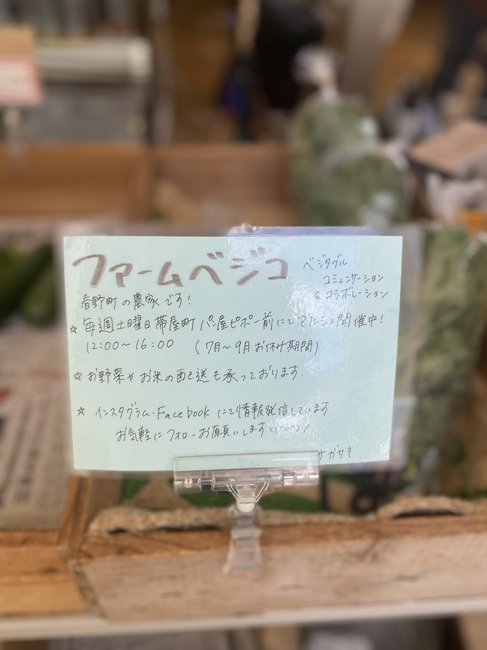 ファームベジコ
ベジタブル
コミュニケーション
& コラボレーション
春野町の農家です!
☆ 毎週土曜日帯屋町 パン屋ピポー前にてマルシェ開催中!
12:00~16:00 (7月~9月お休み期間)
☆ お野菜やお米の配送も承っております.
☆ インスタグラム・Facebookにて情報発信しています.
お気軽にフォローお願いします
ナガサキ